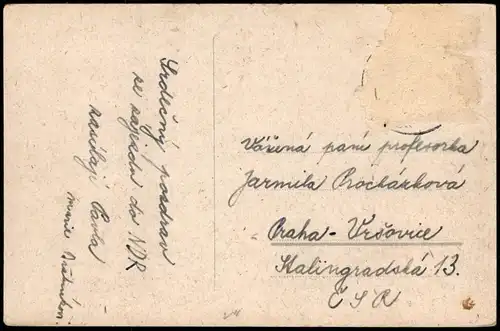 Srdečný pozdrav
ze zájezdu do NDR
zasílají Pavla
Marie
Vážená paní profesorka
Jarmila Procházková
Praha - Vršovice
Stalingradská 13.
ČSR